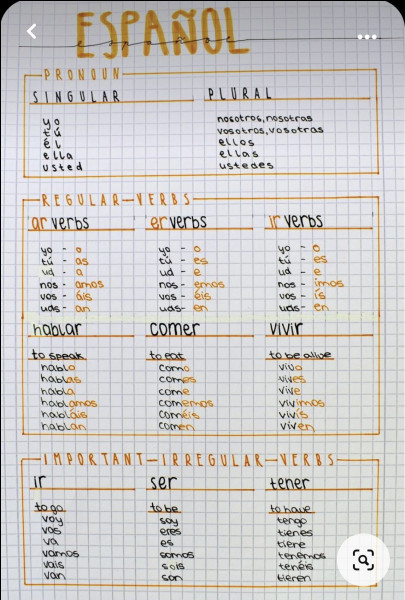 ESPAÑOL
español
PRONOUN
SINGULAR PLURAL
yo nosotros, nosotras
tú vosotros, vosotras
él ellos
ella ellas
usted ustedes
REGULAR-VERBS
ar verbs er verbs ir verbs
yo - o yo - o yo - o
tú - as tú - es tú - es
ud - a ud - e ud - e
nos - amos nos - emos nos - imos
vos - áis vos - éis vos - ís
uds - an uds - en uds - en
hablar comer vivir
to speak to eat to be alive
hablo como vivo
hablas comes vives
habla come vive
hablamos comemos vivimos
habláis coméis vivís
hablan comen viven
IMPORTANT-IRREGULAR-VERBS
ir ser tener
to go to be to have
voy soy tengo
vas eres tienes
va es tiene
vamos somos tenemos
vais sois tenéis
van son tienen